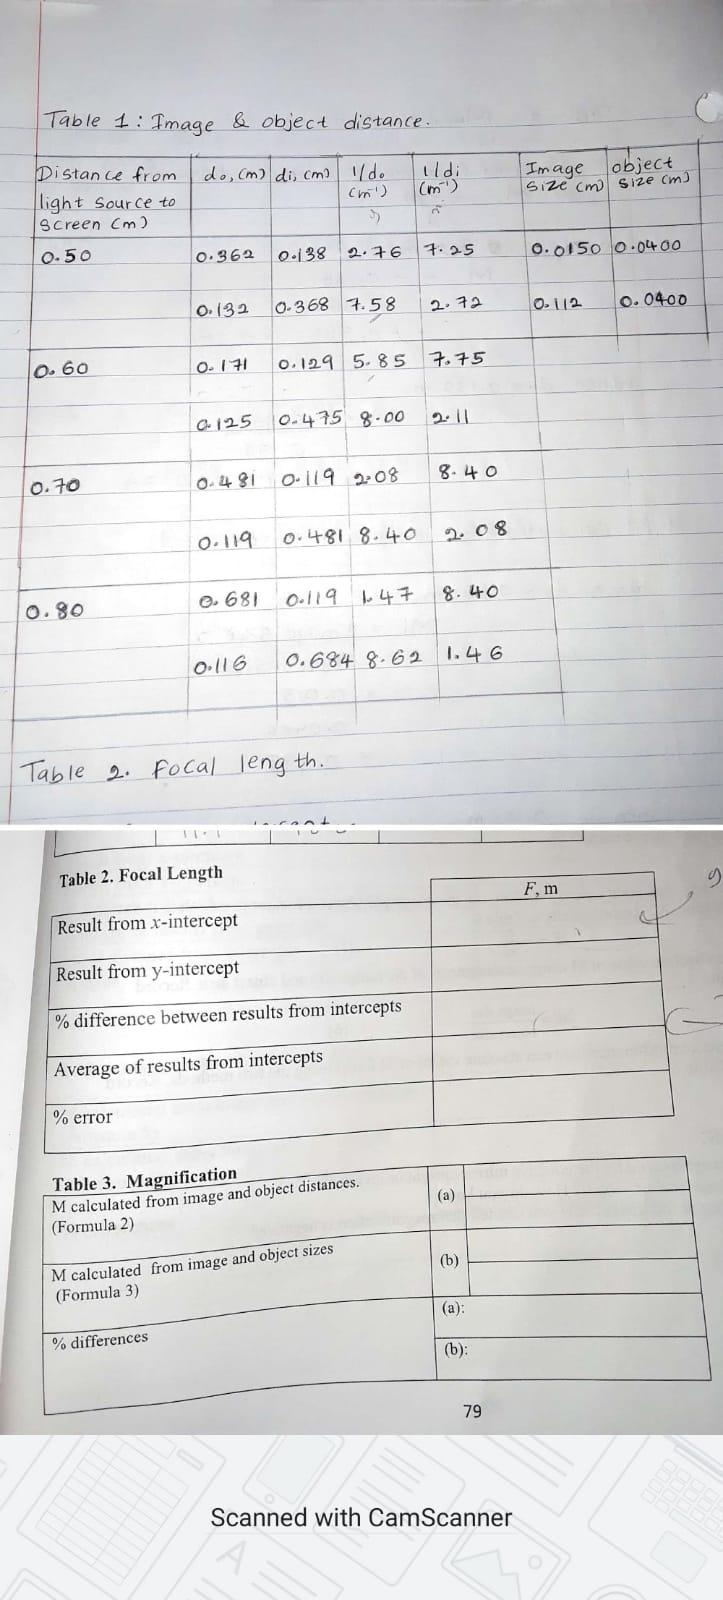 Table 1: Image & object distance.
Distance from do, (m) di, (m) 1/do 1/di Image object
light source to (m⁻¹) (m⁻¹) size (m) size (m)
screen (m)
0.50 0.362 0.138 2.76 7.25 0.0150 0.0400
0.132 0.368 7.58 2.72 0.112 0.0400
0.60 0.171 0.129 5.85 7.75
0.125 0.475 8.00 2.11
0.70 0.481 0.119 2.08 8.40
0.119 0.481 8.40 2.08
0.80 0.681 0.119 1.47 8.40
0.116 0.684 8.62 1.46
Table 2. Focal length.
Table 2. Focal Length
F, m
Result from x-intercept
Result from y-intercept
% difference between results from intercepts
Average of results from intercepts
% error
Table 3. Magnification
M calculated from image and object distances. (a)
(Formula 2)
M calculated from image and object sizes (b)
(Formula 3)
% differences (a):
(b):
79
Scanned with CamScanner